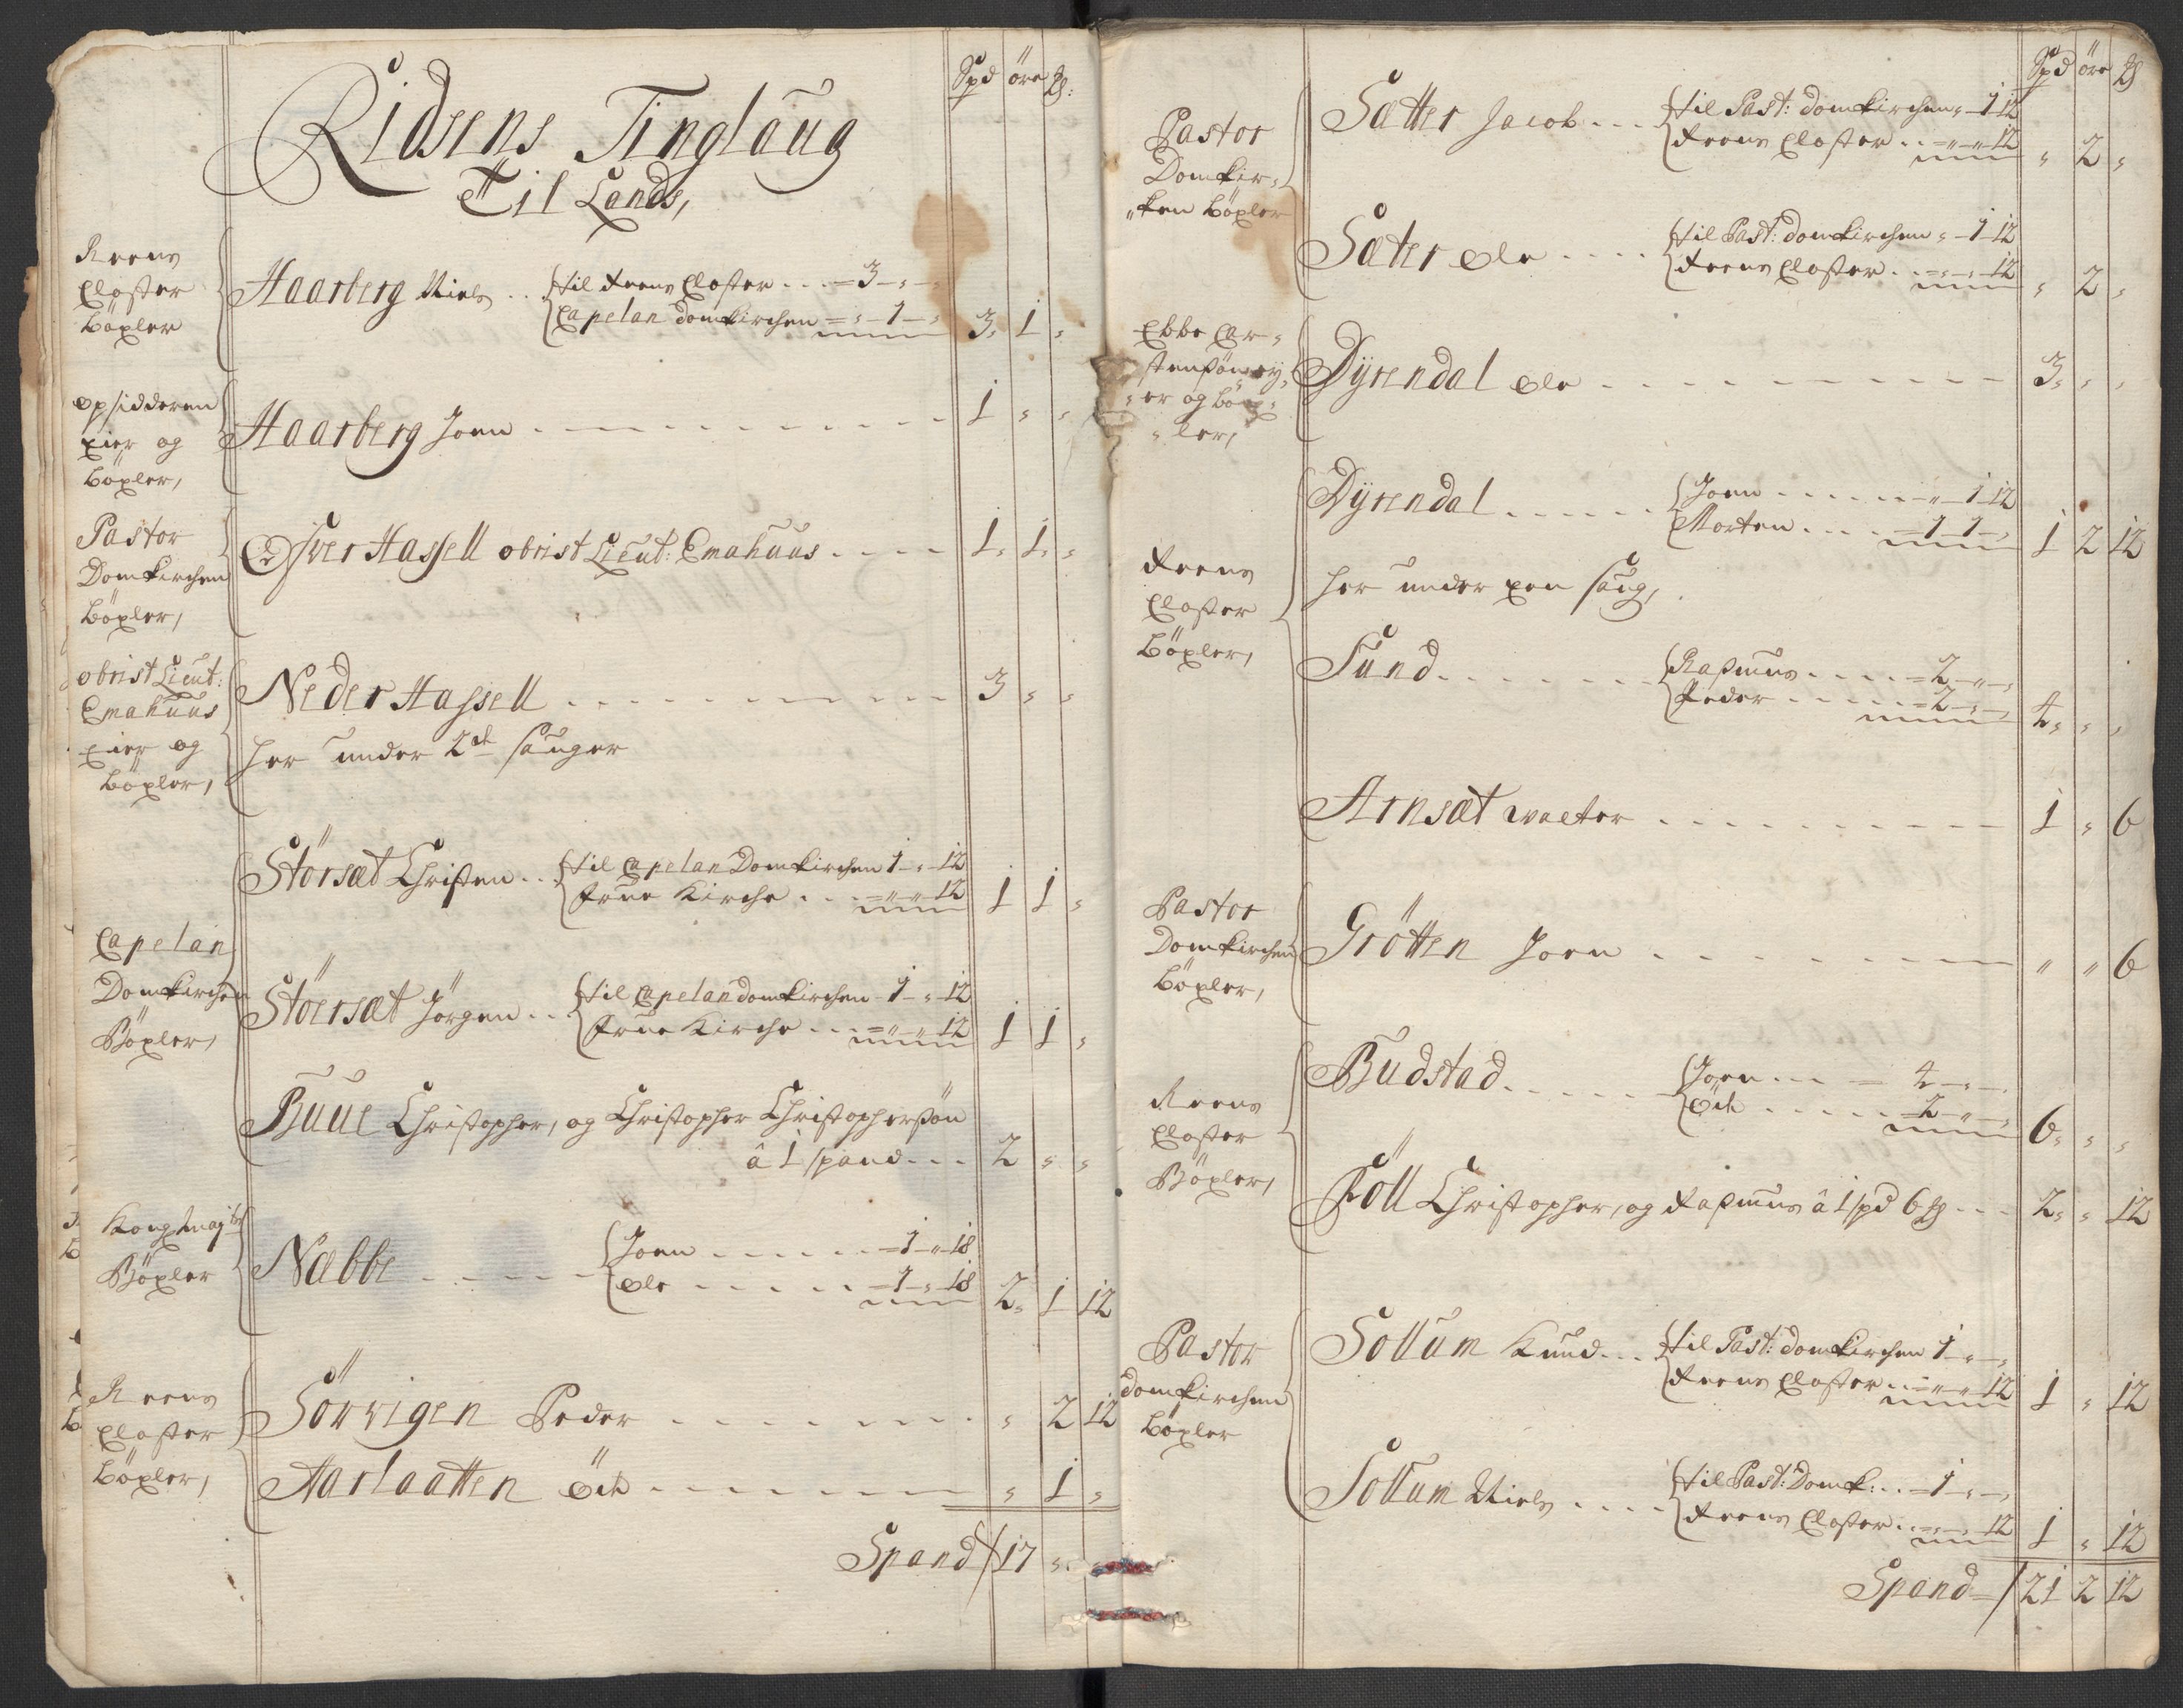 Spd öre ₰:
Ridsens Tinglaug
Til Lands,
Reens
Closter
böxler
Haarberg Niels .. til Reens Closter ... = 3 - „ - „
Capelan domkirchen = „ - 1 - „ 3 „ 1 „
opsidderen
eier og
böxler,
Haarberg Joen - - - - - 1 „ „
Pastor
Domkirchen
böxler,
Øfver Hassell obrist Lieut: Emahuus . . . . 1 „ 1 „ „
obrist Lieut:
Emahuus
eier og
böxler,
Neder Hassell . . . . . . . 3 „ „
her under 2de sauger
Störsæt Christen .. til Capelan Domkirchen 1 - „ - 12
Frue Kirche . . . = „ - „ 12 1 1 „
Capelan
Domkirchen
Böxler,
Stöersæt Jörgen .. til Capelan domkirchen - 1 - „ - 12
Frue Kirche . . . = „ - „ 12 1 1 „
Buue Christopher, og Christopher Christophersøn
â 1 spand . . . 2 „ „
Kongl maj:ts
Böxler
Næbbe . . . . . Joen . . . . . = 1 - „ - 18
Ole . . . . . = 1 - „ - 18 2 „ 1 12
Reens
Closter
böxler,
Sörvigen Peder . . . . . . . „ 2 12
Aarlaatten Öde . . . . . . „ 1 „
Spand / 17 „ „
Spd öre ₰
Pastor
Domkir„
„ken böxler
Sætter Jacob . . . til Past: domkirchen „ - 1 12
Reens Closter . . = „ - „ 12 „ 2 „
Sæter Ole . . . . til Past: domkirchen „ - 1 - 12
Reens Closter . . = „ - „ 12 „ 2 „
Ebbe Car„
stensøn ey„
„er og böx„
„ler,
Dyrendal Ole . . . . . . . . 3 „ „ „
Reens
Closter
böxler,
Dyrendal . . . . . Joen . . . . . . - „ - 1 12
Morten . . . . = 1 - 1 - „ 1 2 12
her under een saug,
Sund . . . . . . . Rasmus . . . . = 2 - „ - „
Peder . . . . . = 2 - „ - „ 4 „ „ „
Arnsæt walter . . . . . . . . 1 „ 6
Pastor
Domkirchen
böxler,
Grötten Joen . . . . . . „ „ 6
Reens
Closter
Böxler,
Budstad . . . . . Joen . . . = 4 - „ - „
Öde . . . . . . 2 - „ - „ 6 „ „ „
Röll Christopher, og Rasmus â 1 spd 6 ₰ . . . 2 „ „ 12
Pastor
domkirchen
böxler
Sollum Knud . . . til Past: domkirchen 1 - „ - „
Reens Closter . . = „ - „ 12 1 „ 12
Sollum Niels . . . . til Past: Domk: . . = 1 - „ - „
Reens Closter . . = „ - „ 12 1 „ 12
Spand = / 21 2 12